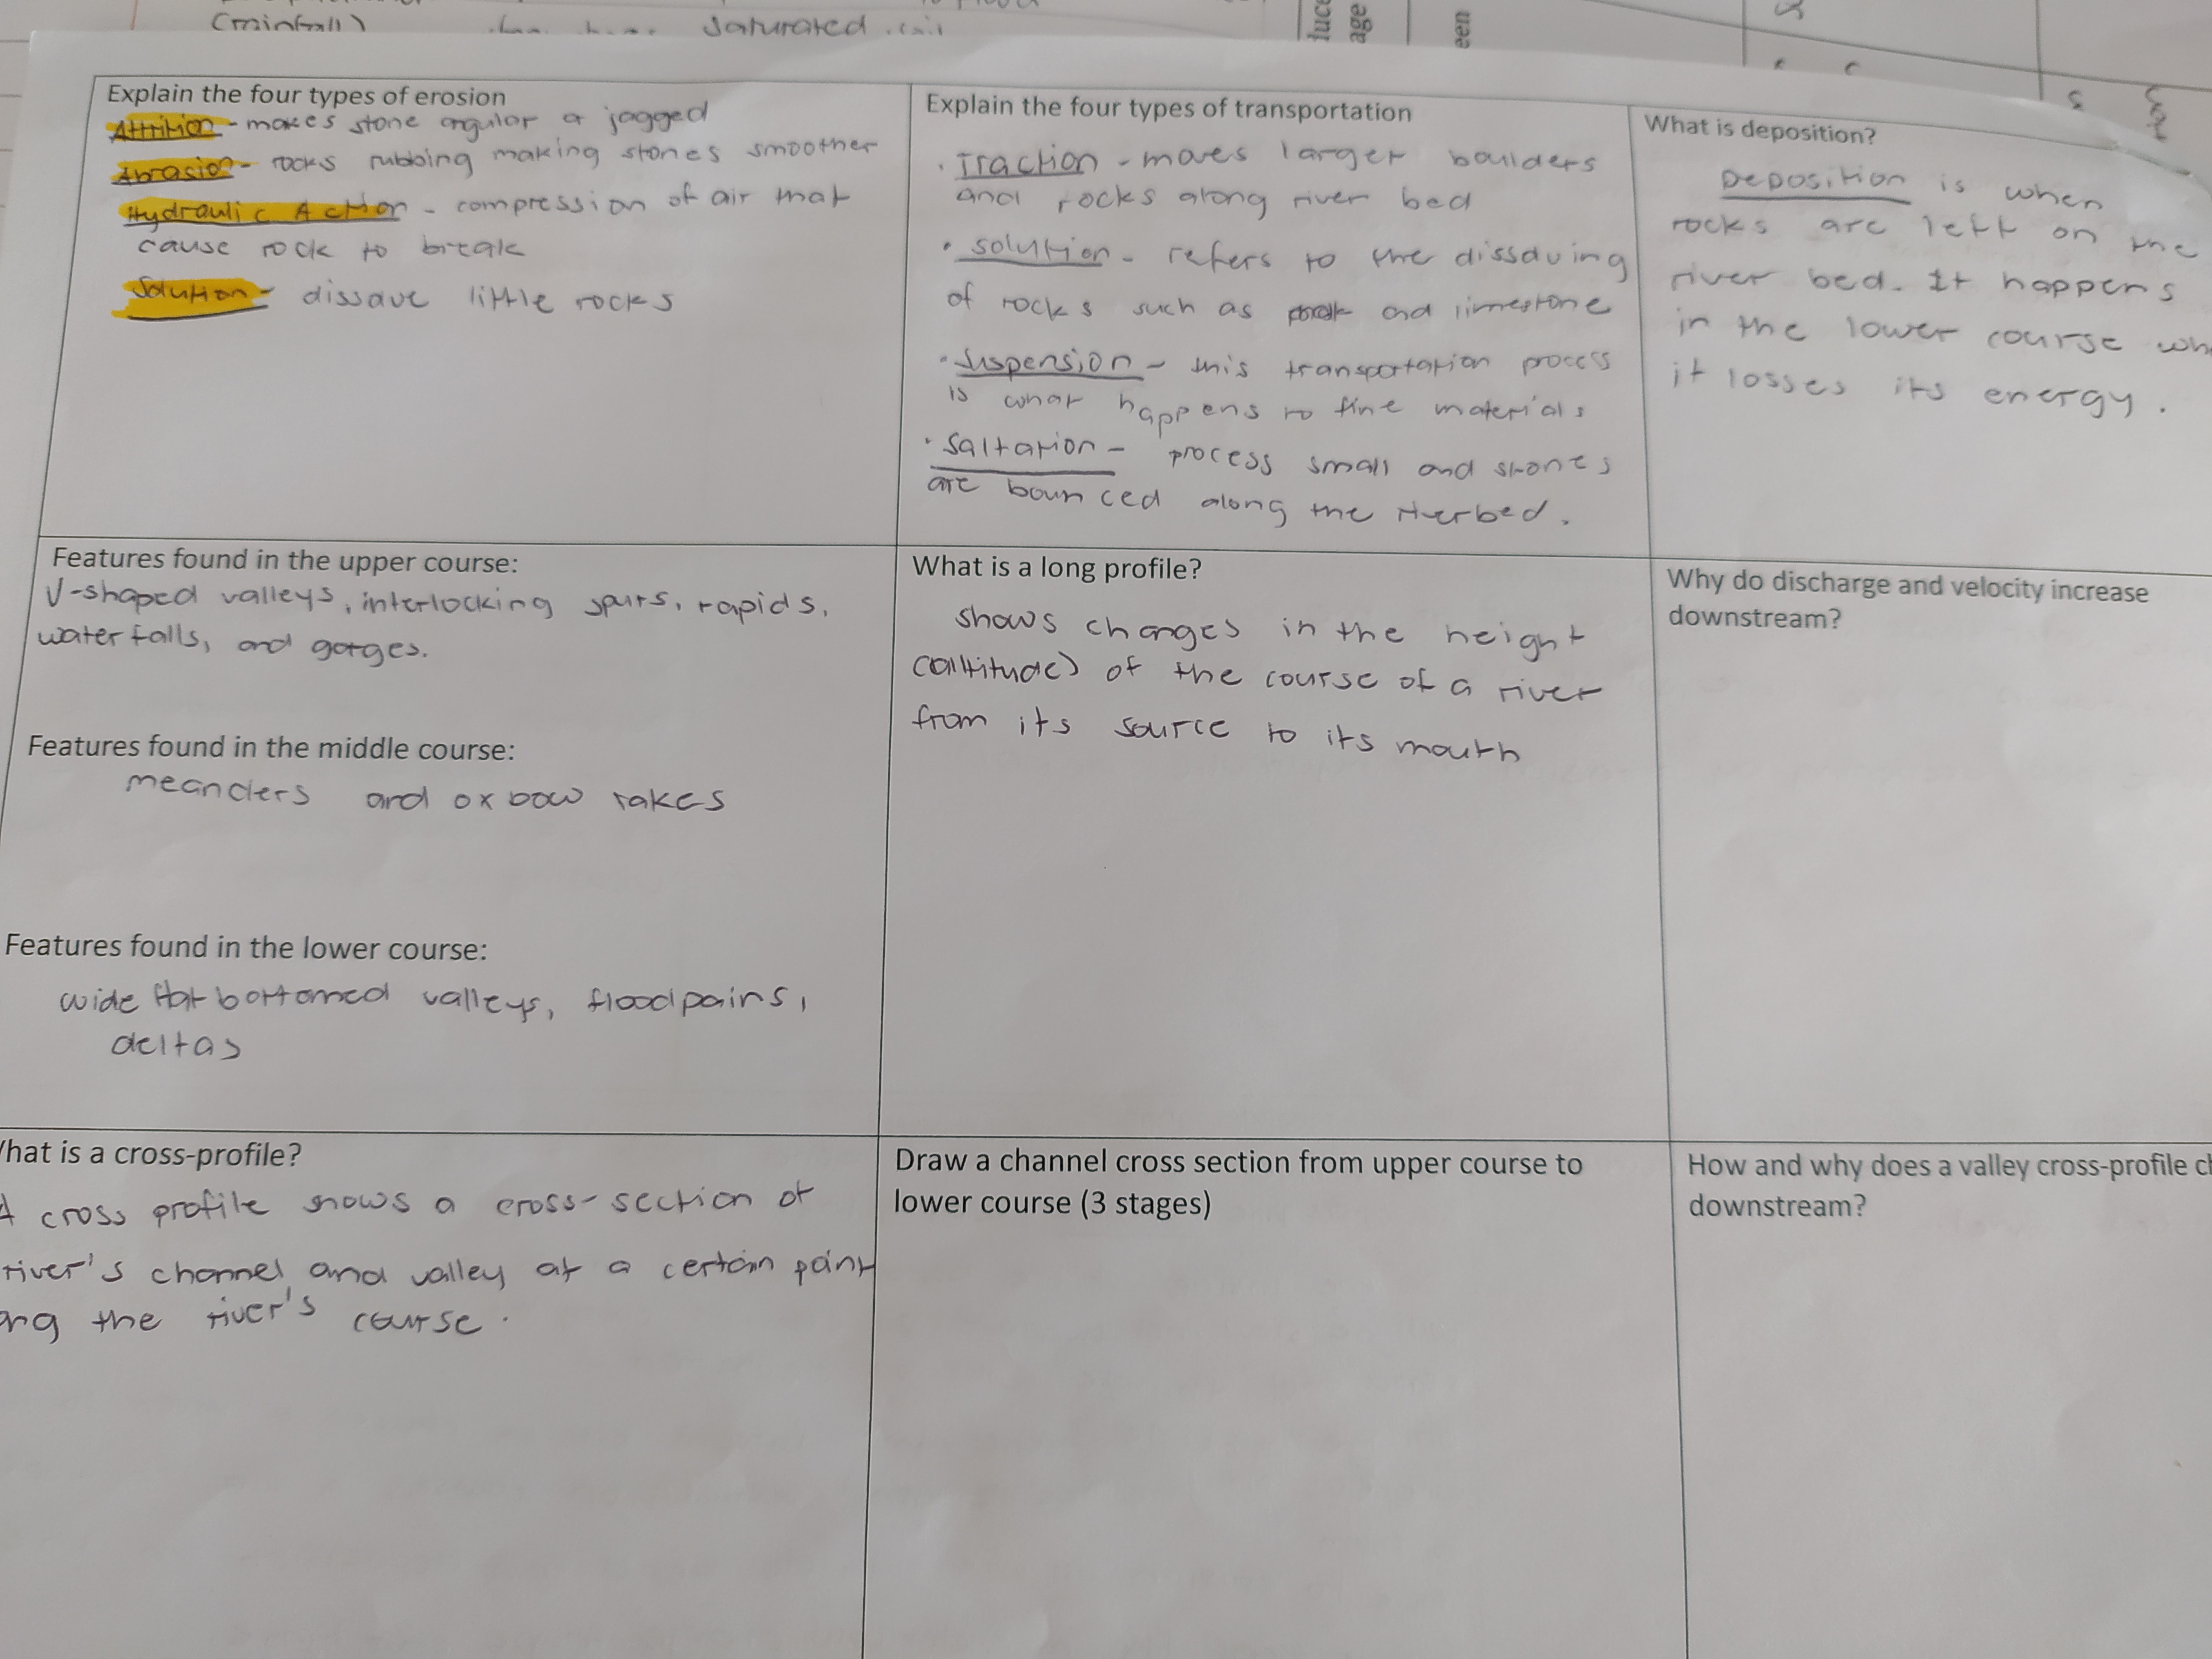 (rainfall) saturated
Explain the four types of erosion
Attrition - makes stone angular or jagged
Abrasion - rocks rubbing making stones smoother
Hydraulic Action - compression of air that
cause rock to break
Solution - dissave little rocks
Explain the four types of transportation
. Traction - moves larger boulders
and rocks along river bed
. solution - refers to the dissolving
of rocks such as and limestone
. Suspension - this transportation process
is what happens to fine materials
. Saltation - process small and stones
are bounced along the riverbed.
What is deposition?
Deposition is when
rocks are left on the
river bed. It happens
in the lower course wh
it losses its energy.
Features found in the upper course:
V-shaped valleys, interlocking spurs, rapids,
waterfalls, and gorges.
Features found in the middle course:
meanders and oxbow lakes
Features found in the lower course:
wide flat bottomed valleys, floodpains,
deltas
What is a long profile?
shows changes in the height
(altitude) of the course of a river
from its source to its mouth
Why do discharge and velocity increase
downstream?
hat is a cross-profile?
A cross profile shows a cross-section of
river's channel and valley at a certain point
ong the river's course.
Draw a channel cross section from upper course to
lower course (3 stages)
How and why does a valley cross-profile ch
downstream?
luce
age
een